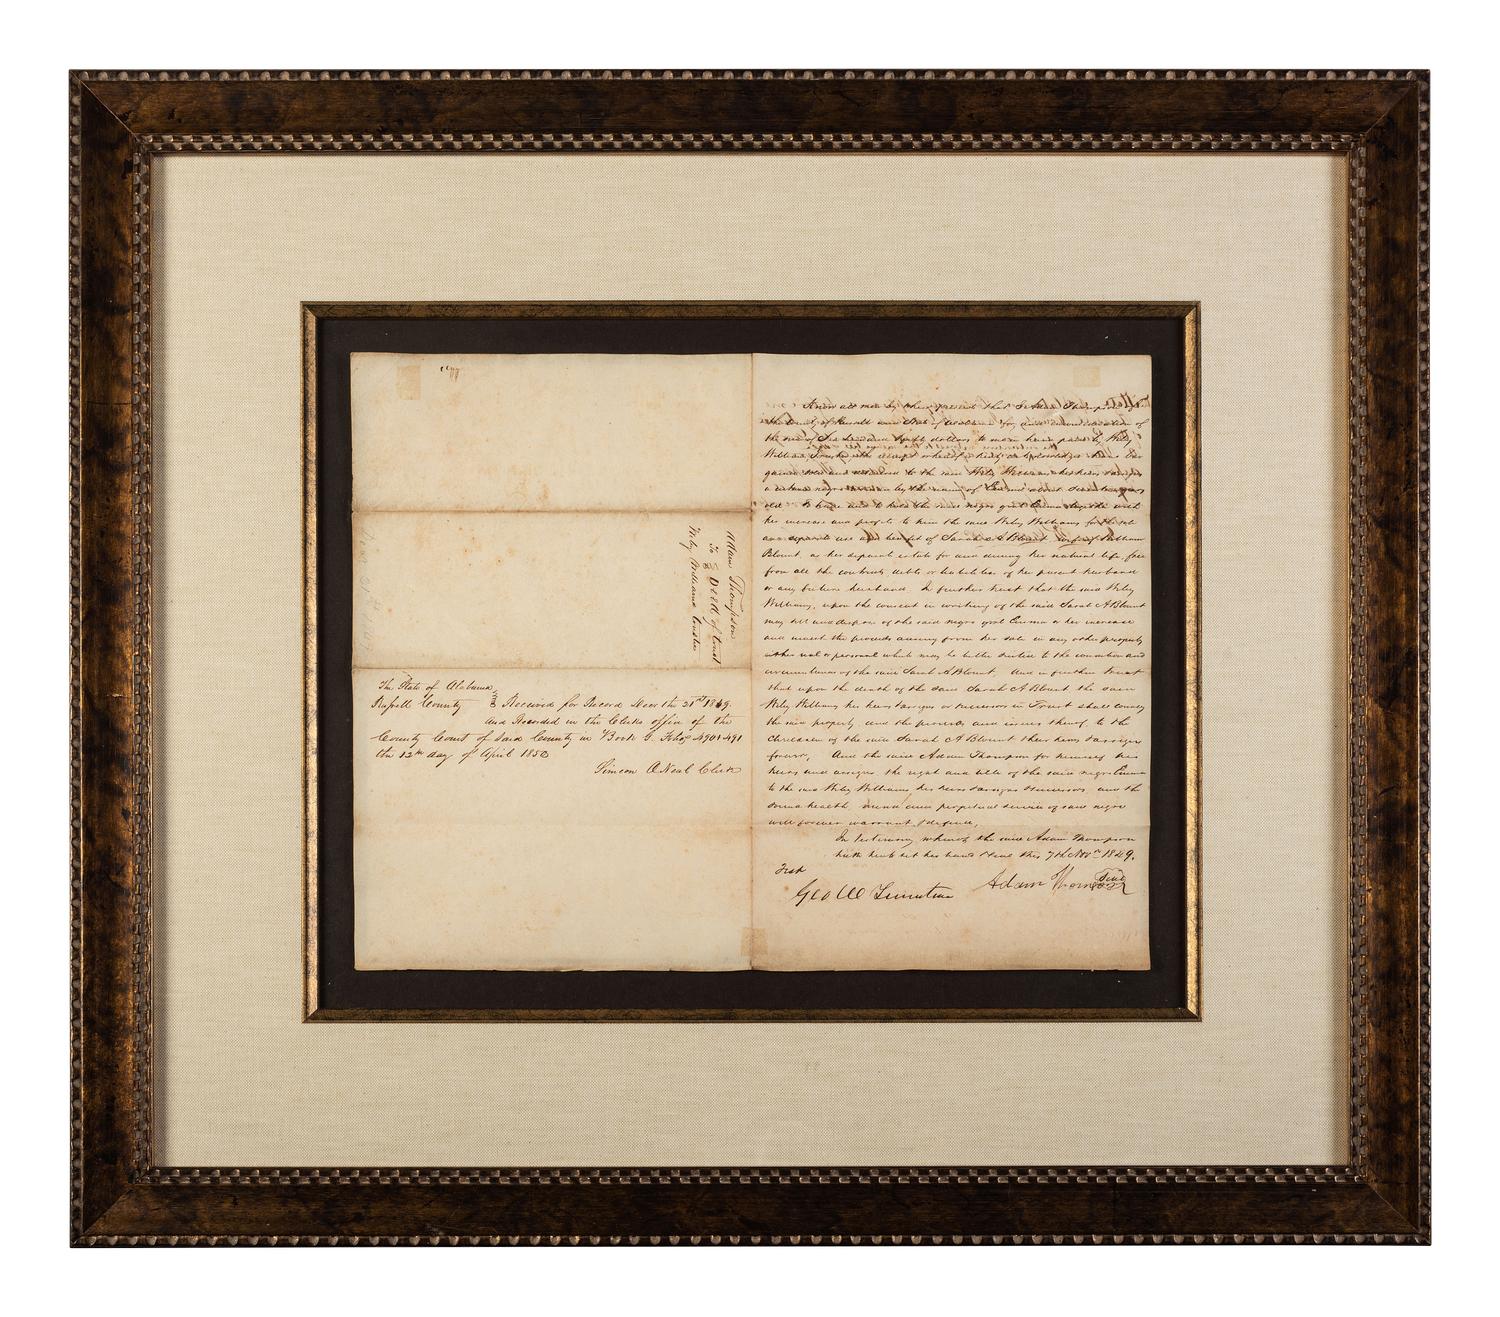 Adam Thompson
To } Deed of Trust
Wily Williams Trustee
The State of Alabama
Russell County } Received for Record Novr the 21st 1849.
and Recorded in the Clerks office of the
County Court of Said County in Book G. Folios 490 & 491
the 12th day of April 1850
Simeon O Neal Clerk
Know all men by these presents that I Adam Thompson
the County of Russell and State of Alabama for and in consideration of
the sum of Six hundred & fifty dollars to me in hand paid by Wily
Williams, the receipt whereof is hereby acknowledged have bar
gained sold and delivered to the said Wily Williams his heirs & assigns
a certain negro by the name of Emma about years
old. To have and to hold the said negro girl Emma together with
her increase and profits to him the said Wily Williams for the sole
and separate use and benefit of Sarah A Blount wife of William
Blount, as her separate estate for and during her natural life, free
from all the contracts debts or liabilities of her present husband
or any future husband. In further trust that the said Wily
Williams, upon the consent in writing of the said Sarah A Blount
may sell and dispose of the said negro girl Emma or her increase
and invest the proceeds arising from her sale in any other property
either real or personal which may be better suited to the condition and
circumstances of the said Sarah A Blount. And in further trust
that upon the death of the said Sarah A Blount the said
Wily Williams his heirs & assigns or successors in Trust shall convey
the said property, and the proceeds and issues thereof to the
children of the said Sarah A Blount their heirs & assigns
forever, And the said Adam Thompson for himself his
heirs and assigns the right and title of the said negro Emma
to the said Wily Williams his heirs & assigns & successors, and the
soundness of health mind and perpetual service of said negro
will forever warrant & defend,
In testimony whereof the said Adam Thompson
hath hereto set his hand & seal this 7th Novr 1849.
Test
Geo W Adam Thompson Seal